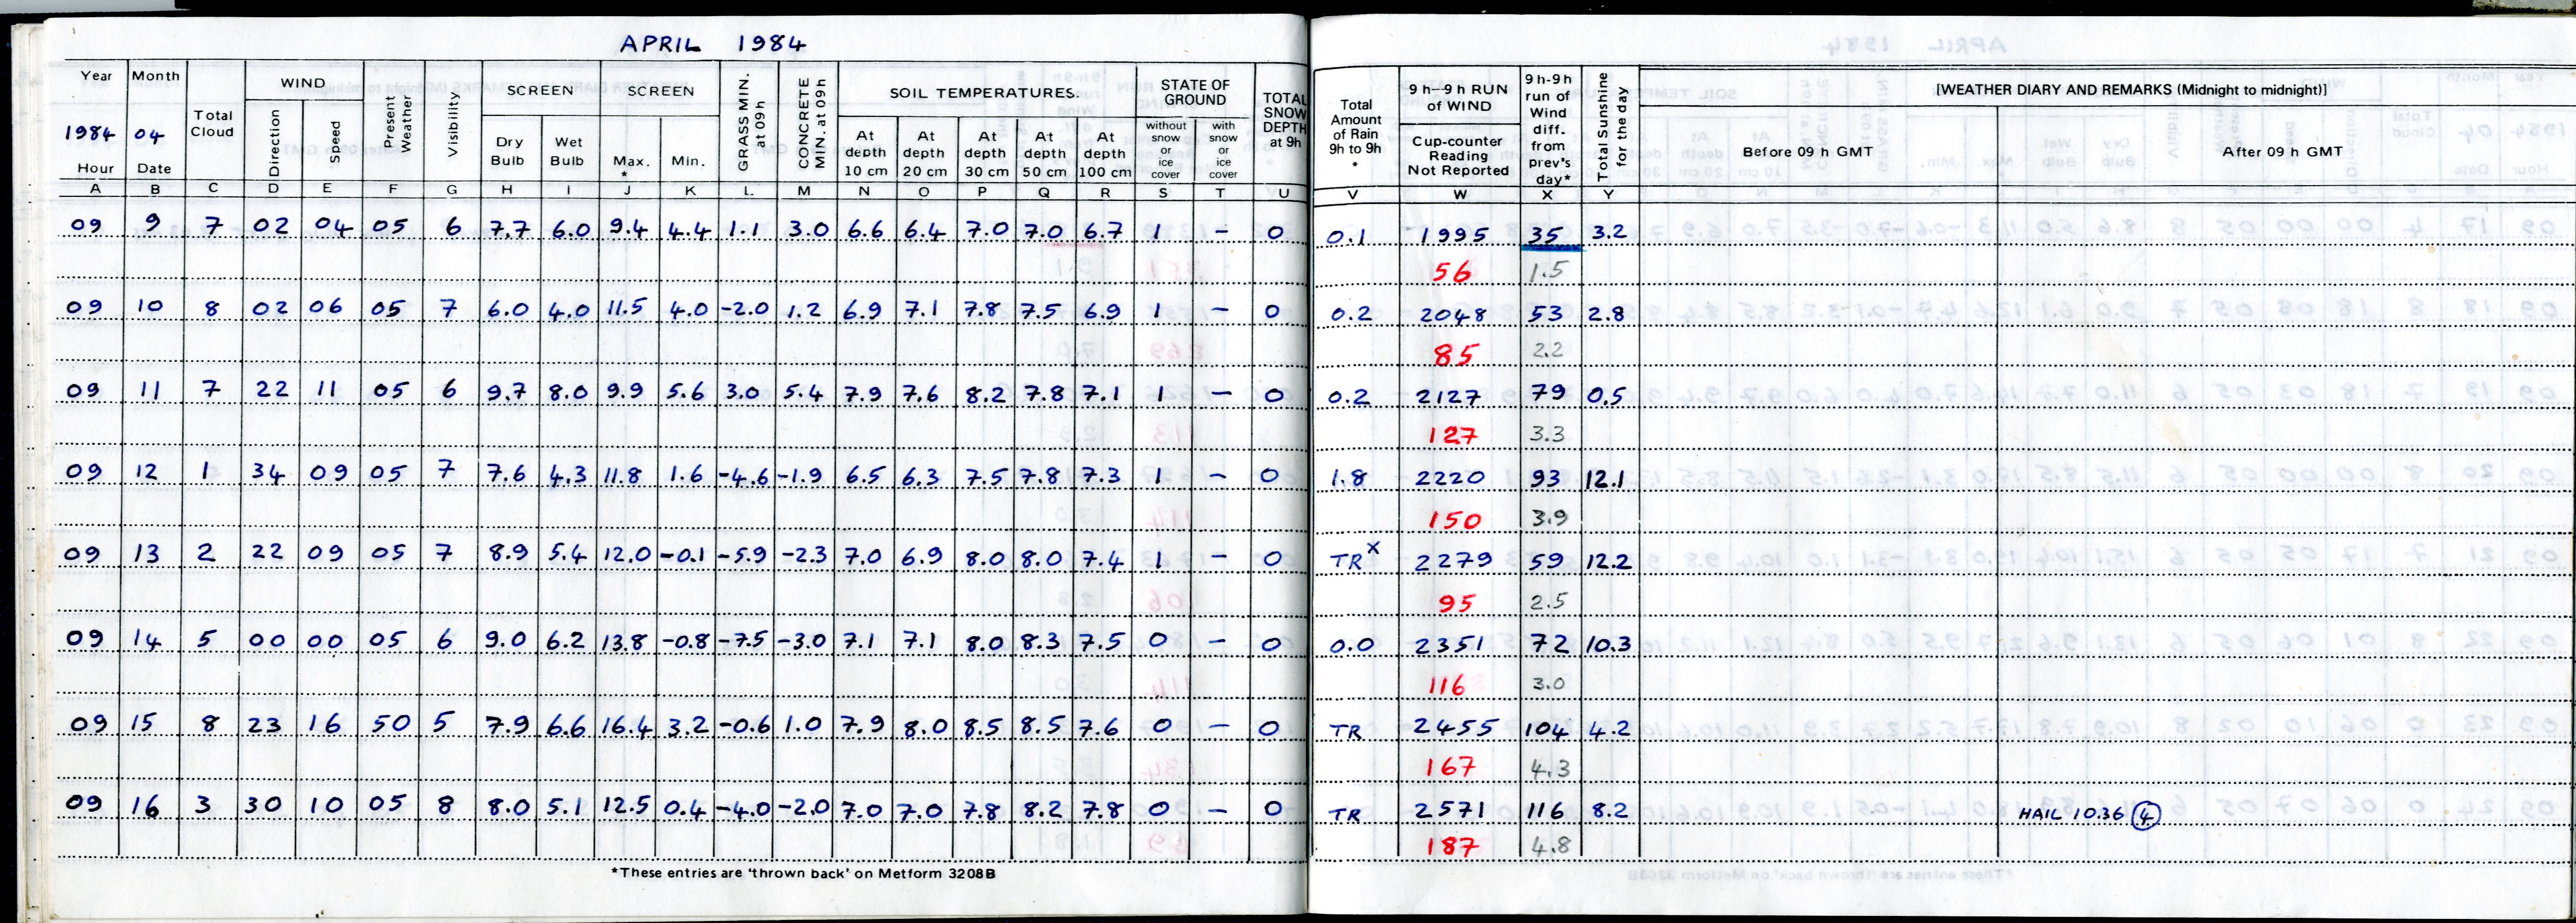 APRIL 1984
Year Month Total Cloud WIND Present Weather Visibility SCREEN SCREEN GRASS MIN. at 09h CONCRETE MIN. at 09h SOIL TEMPERATURES. STATE OF GROUND TOTAL SNOW DEPTH at 9h Total Amount of Rain 9h to 9h * 9 h--9 h RUN of WIND 9h-9h run of Wind diff. from prev's day* Total Sunshine for the day [WEATHER DIARY AND REMARKS (Midnight to midnight)]
1984 04 Direction Speed Dry Bulb Wet Bulb Max. * Min. At depth 10 cm At depth 20 cm At depth 30 cm At depth 50 cm At depth 100 cm without snow or ice cover with snow or ice cover Cup-counter Reading Not Reported Before 09 h GMT After 09 h GMT
Hour Date
A B C D E F G H I J K L. M N O P Q R S T U V W X Y
09 9 7 02 04 05 6 7.7 6.0 9.4 4.4 1.1 3.0 6.6 6.4 7.0 7.0 6.7 1 – 0 0.1 1995 35 3.2
56 1.5
09 10 8 02 06 05 7 6.0 4.0 11.5 4.0 -2.0 1.2 6.9 7.1 7.8 7.5 6.9 1 – 0 0.2 2048 53 2.8
85 2.2
09 11 7 22 11 05 6 9.7 8.0 9.9 5.6 3.0 5.4 7.9 7.6 8.2 7.8 7.1 1 – 0 0.2 2127 79 0.5
127 3.3
09 12 1 34 09 05 7 7.6 4.3 11.8 1.6 -4.6 -1.9 6.5 6.3 7.5 7.8 7.3 1 – 0 1.8 2220 93 12.1
150 3.9
09 13 2 22 09 05 7 8.9 5.4 12.0 -0.1 -5.9 -2.3 7.0 6.9 8.0 8.0 7.4 1 – 0 TR x 2279 59 12.2
95 2.5
09 14 5 00 00 05 6 9.0 6.2 13.8 -0.8 -7.5 -3.0 7.1 7.1 8.0 8.3 7.5 0 – 0 0.0 2351 72 10.3
116 3.0
09 15 8 23 16 50 5 7.9 6.6 16.4 3.2 -0.6 1.0 7.9 8.0 8.5 8.5 7.6 0 – 0 TR 2455 104 4.2
167 4.3
09 16 3 30 10 05 8 8.0 5.1 12.5 0.4 -4.0 -2.0 7.0 7.0 7.8 8.2 7.8 0 – 0 TR 2571 116 8.2 HAIL 10.36 ④
187 4.8
*These entries are 'thrown back' on Metform 3208B